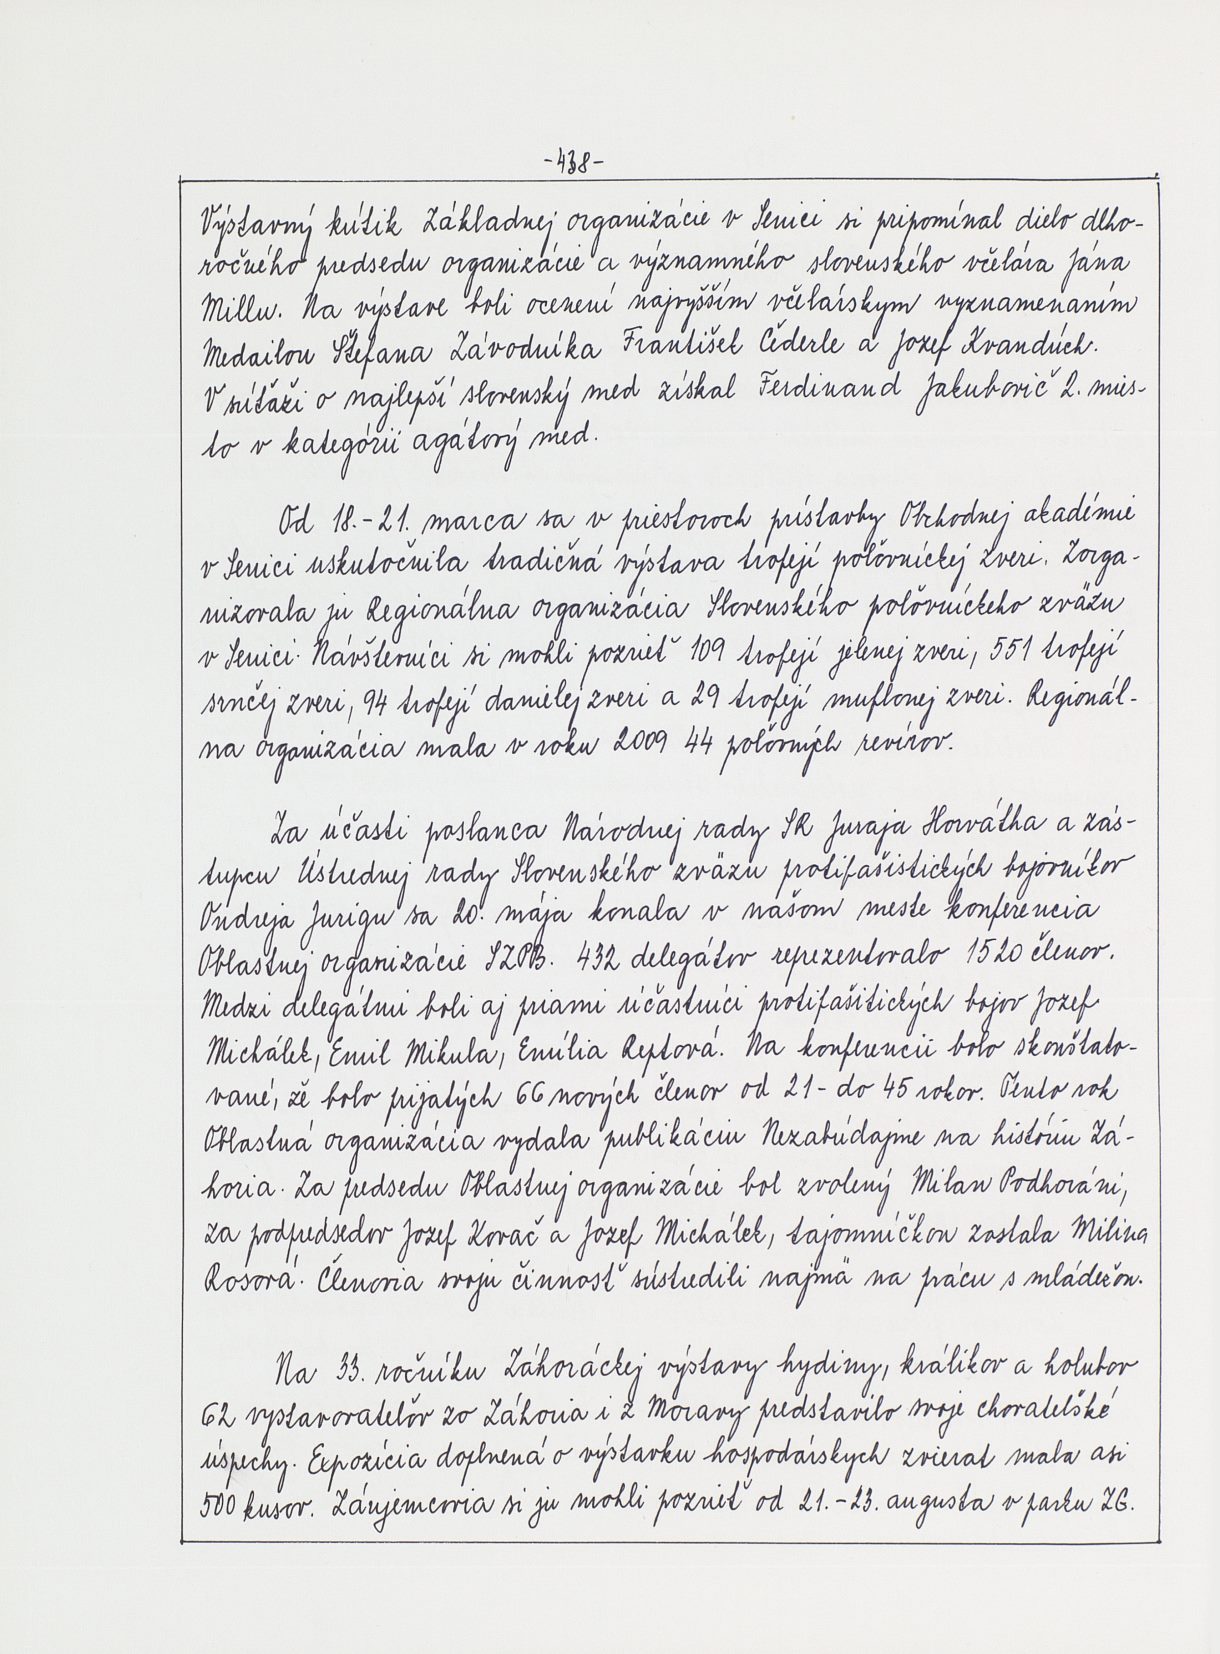 -438-
Výstavný kútik Základnej organizácie v Senici si pripomínal dielo dlho-
ročného predsedu organizácie a významného slovenského včelára Jána
Millu. Na výstave boli ocenení najvyšším včelárskym vyznamenaním
Medailou Štefana Závodníka František Čederle a Jozef Kvandúch.
V súťaži o najlepší slovenský med získal Ferdinand Jakubovič 2. mies-
to v kategórii agátový med.
Od 18.-21. marca sa v priestoroch prístavby Obchodnej akadémie
v Senici uskutočnila tradičná výstava trofejí poľovníckej zveri. Zorga-
nizovala ju Regionálna organizácia Slovenského poľovníckeho zväzu
v Senici. Návštevníci si mohli pozrieť 109 trofejí jelenej zveri, 551 trofejí
srnčej zveri, 94 trofejí danielej zveri a 29 trofejí muflonej zveri. Regionál-
na organizácia mala v roku 2009 44 poľovných revírov.
Za účasti poslanca Národnej rady SR Juraja Horvátha a zás-
tupcu Ústrednej rady Slovenského zväzu protifašistických bojovníkov
Ondreja Jurigu sa 20. mája konala v našom meste konferencia
Oblastnej organizácie SZPB. 432 delegátov reprezentovalo 1520 členov.
Medzi delegátmi boli aj priami účastníci protifašitických bojov Jozef
Michálek, Emil Mikula, Emília Reptová. Na konferencii bolo skonštato-
vané, že bolo prijatých 66 nových členov od 21- do 45 rokov. Tento rok
Oblastná organizácia vydala publikáciu Nezabúdajme na históriu Zá-
horia. Za predsedu Oblastnej organizácie bol zvolený Milan Podhoráni,
za podpredsedov Jozef Kovač a Jozef Michálek, tajomníčkou zostala Milina
Rosová. Členovia svoju činnosť sústredili najmä na prácu s mládežou.
Na 33. ročníku Záhoráckej výstavy hydiny, králikov a holubov
62 vystavovateľov zo Záhoria i z Moravy predstavilo svoje chovateľské
úspechy. Expozícia doplnená o výstavku hospodárskych zvierat mala asi
500 kusov. Záujemcovia si ju mohli pozrieť od 21.-23. augusta v parku ZG.